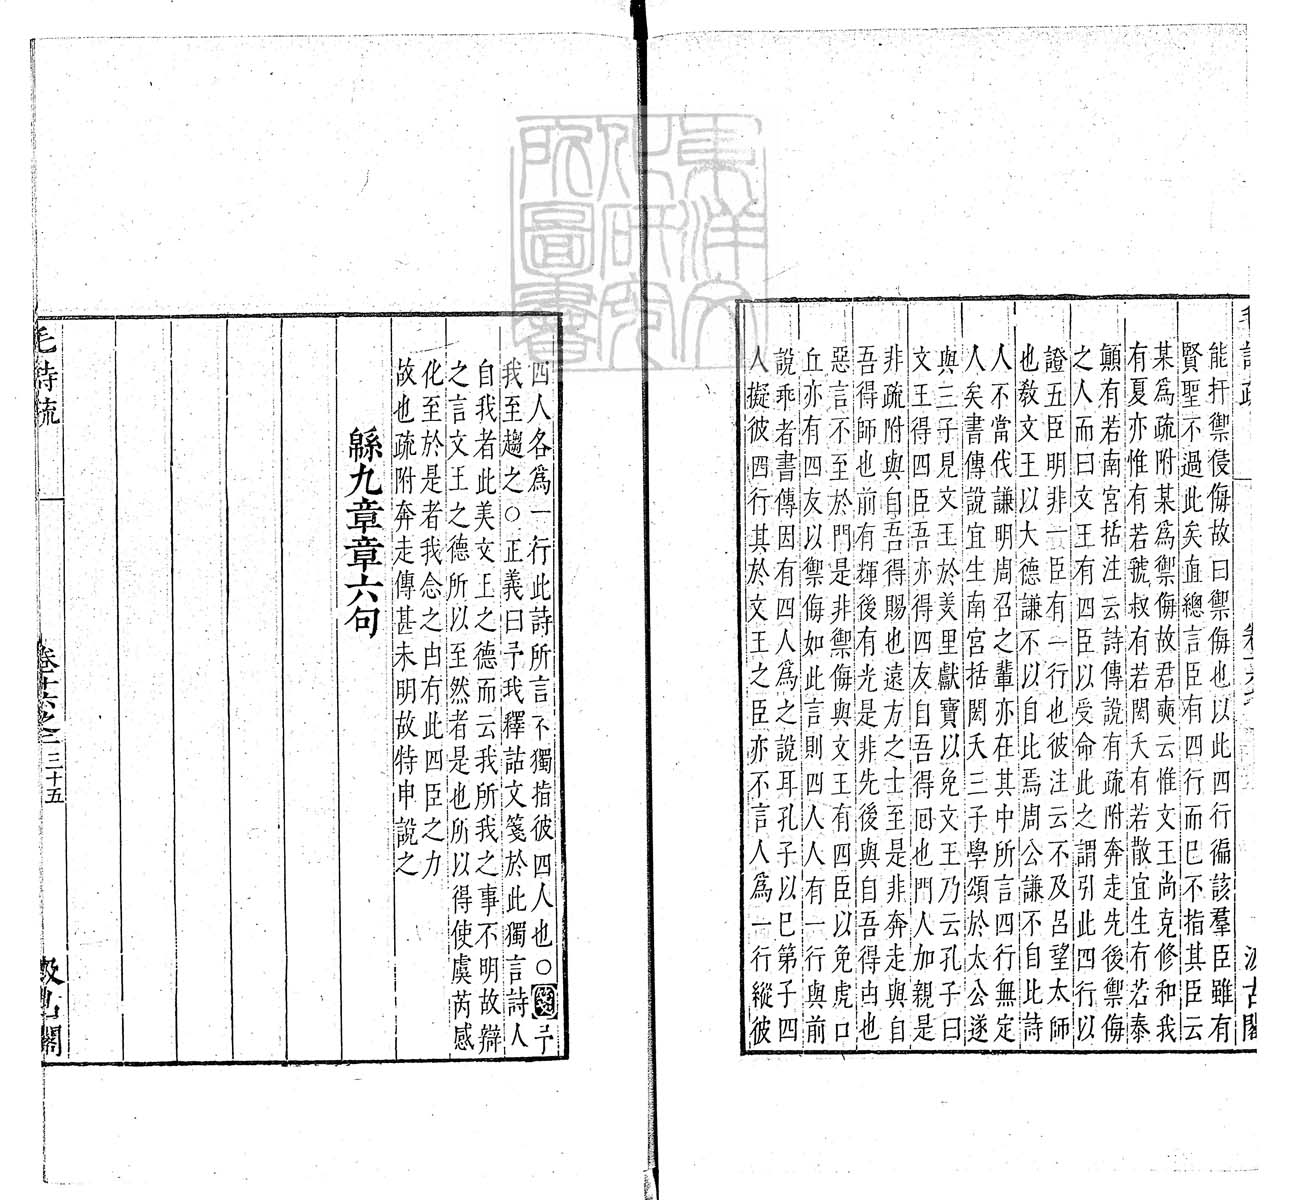 能扞禦侵侮故曰禦侮也以此四行徧該羣臣雖有
賢聖不過此矣直總言臣有四行而已不指其臣云
某為疏附某為禦侮故君奭云惟文王尚克修和我
有夏亦惟有若虢叔有若閎夭有若散宜生有若泰
顛有若南宮括注云詩傳說有疏附奔走先後禦侮
之人而曰文王有四臣以受命此之謂引此四行以
證五臣明非一臣有一行也彼注云不及呂望太師
也敎文王以大德謙不以自比焉周公謙不自比詩
人不當代謙明周召之輩亦在其中所言四行無定
人矣書傳說宜生南宮括閎夭三子學頌於太公遂
與三子見文王於羑里獻寶以免文王乃云孔子曰
文王得四臣吾亦得四友自吾得囘也門人加親是
非疏附與自吾得賜也遠方之士至是非奔走與自
吾得師也前有輝後有光是非先後與自吾得由也
惡言不至於門是非禦侮與文王有四臣以免虎口
丘亦有四友以禦侮如此言則四人人有一行與前
說乖者書傳因有四人為之說耳孔子以已第子四
人擬彼四行其於文王之臣亦不言人為一行縱彼
四人各為一行此詩所言不獨指彼四人也○箋予
我至趨之○正義曰予我釋詁文箋於此獨言詩人
自我者此美文王之德而云我所我之事不明故辯
之言文王之德所以至然者是也所以得使虞芮感
化至於是者我念之由有此四臣之力
故也疏附奔走傳甚未明故特申說之
緜九章章六句
毛詩疏
卷十六之二
三十五
汲古閣